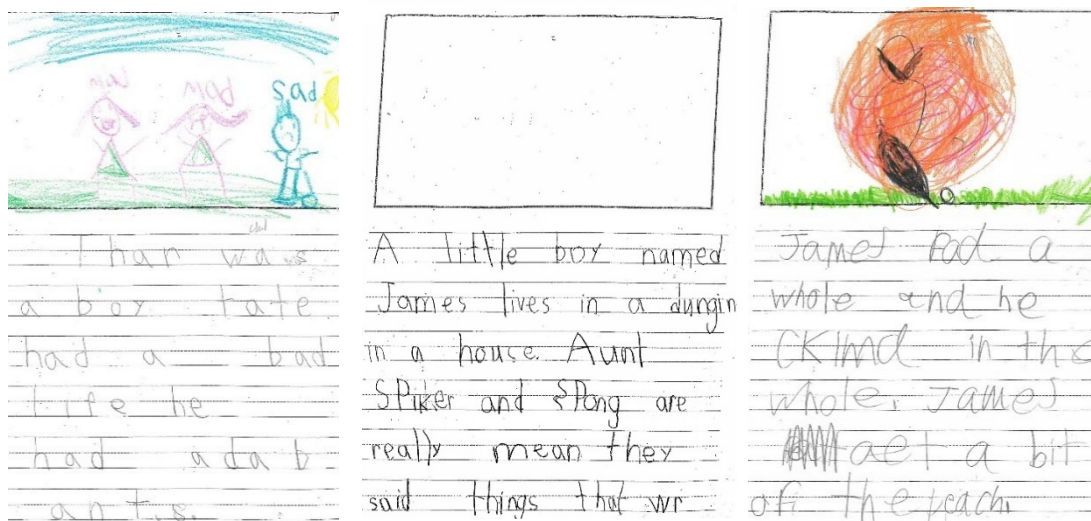 mad mad sad
Thar was
a boy tate
had a bad
life he
had adab
ants.
A little boy named
James lives in a dungin
in a house. Aunt
SPiker and SPong are
really mean they
said things that wr
James Fad a
whole and he
CKlmd in the
whole. James
aet a bit
of the peach.